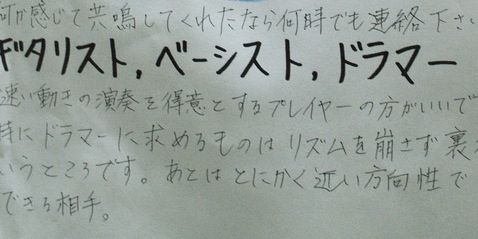 何か感じて共鳴してくれたなら何時でも連絡下さい
ギタリスト,ベーシスト,ドラマー
速い動きの演奏を得意とするプレイヤーの方がいいで
特にドラマーに求めるものはリズムを崩さず裏
いうところです。あとはとにかく近い方向性で
できる相手。